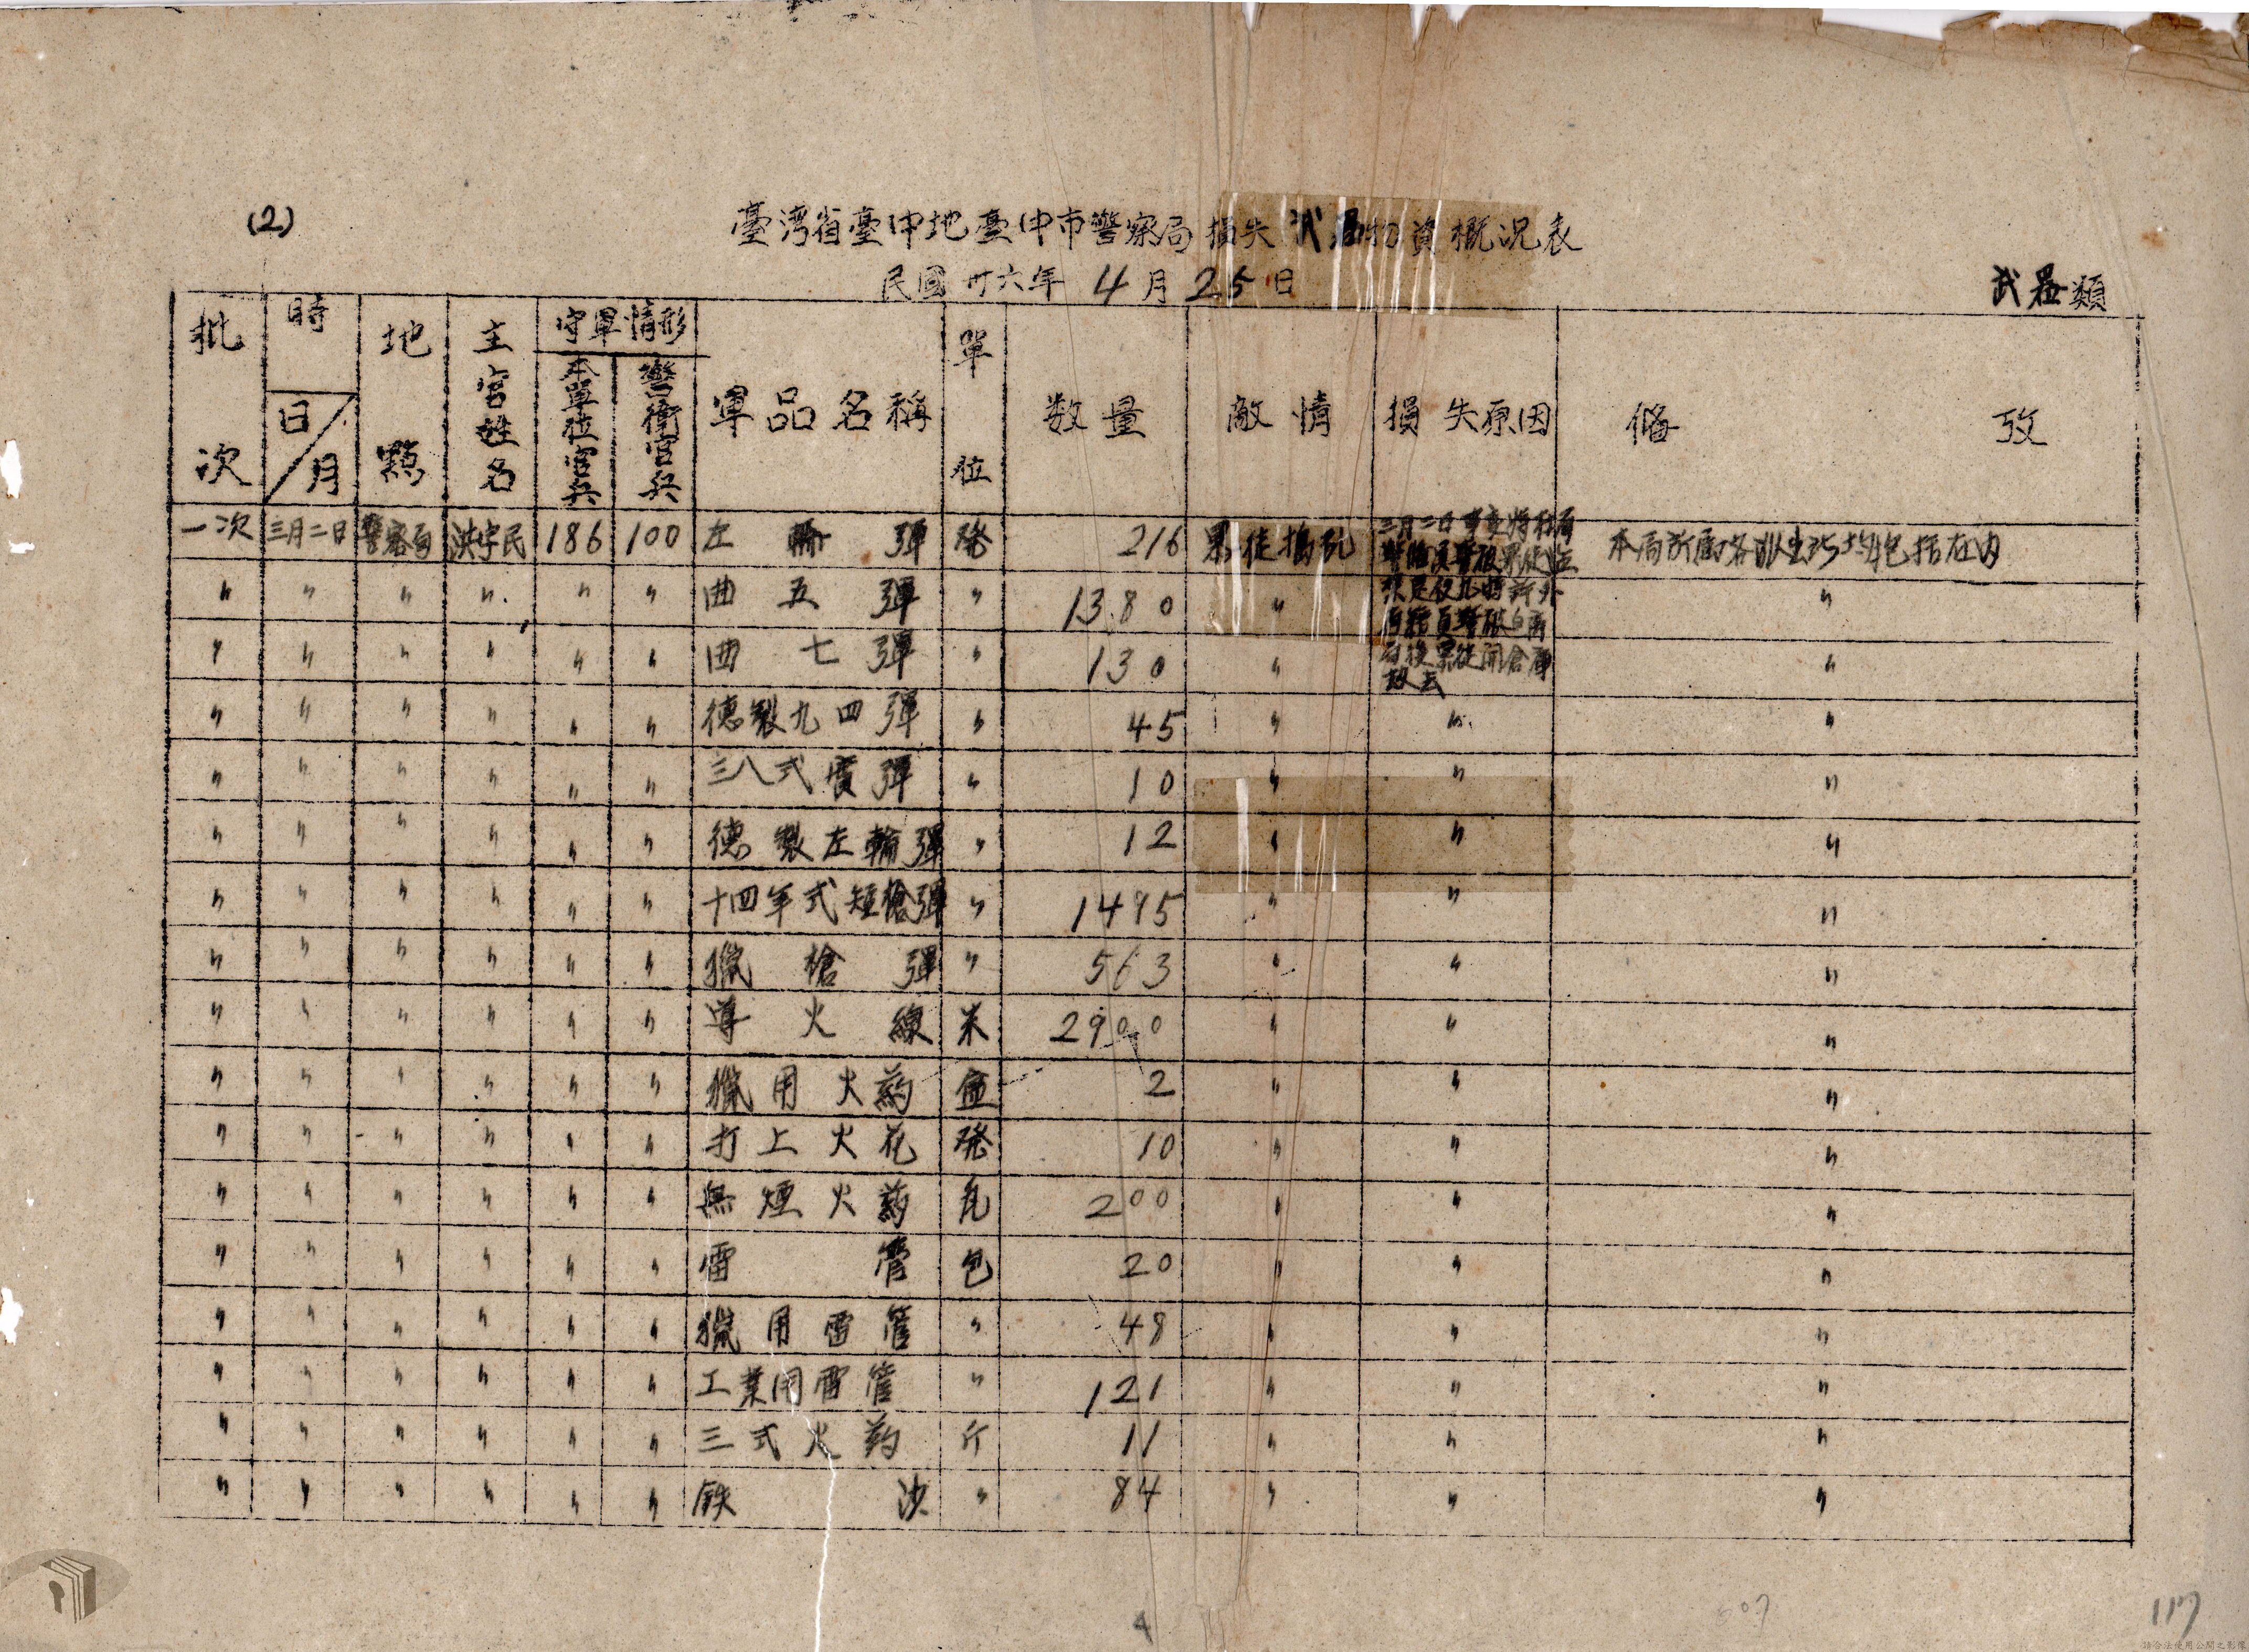 (2)
臺湾省臺中地臺中市警察局損失武器物資概況表
民國卅六年 4月25日
武器類
批次 時 日/月 地點 主官姓名 守軍情形 本單位官兵 警衛官兵 軍品名稱 單位 数量 敵情 損失原因 俻攷
一次 三月二日 警察局 洪字民 186 100 左輪彈 発 216 暴徒搗乱 本局所属各 均包括在内
〃 〃 〃 〃 〃 〃 曲五彈 〃 1380 〃 〃
〃 〃 〃 〃 〃 〃 曲七彈 〃 130 〃 〃
〃 〃 〃 〃 〃 〃 德製九四彈 〃 45 〃 〃 〃
〃 〃 〃 〃 〃 〃 三八式實彈 〃 10 〃 〃 〃
〃 〃 〃 〃 〃 〃 德製左輪彈 〃 12 〃 〃 〃
〃 〃 〃 〃 〃 〃 十四年式短槍彈 〃 1495 〃 〃 〃
〃 〃 〃 〃 〃 〃 獵槍彈 〃 563 〃 〃 〃
〃 〃 〃 〃 〃 〃 導火線 米 2900 〃 〃 〃
〃 〃 〃 〃 〃 〃 獵用火药 盒 2 〃 〃 〃
〃 〃 〃 〃 〃 〃 打上火花 発 10 〃 〃 〃
〃 〃 〃 〃 〃 〃 無煙火药 瓦 200 〃 〃 〃
〃 〃 〃 〃 〃 〃 雷管 包 20 〃 〃 〃
〃 〃 〃 〃 〃 〃 獵用雷管 〃 48 〃 〃 〃
〃 〃 〃 〃 〃 〃 工業用雷管 〃 121 〃 〃 〃
〃 〃 〃 〃 〃 〃 三式火药 斤 11 〃 〃 〃
〃 〃 〃 〃 〃 〃 鉄沙 〃 84 〃 〃 〃
117